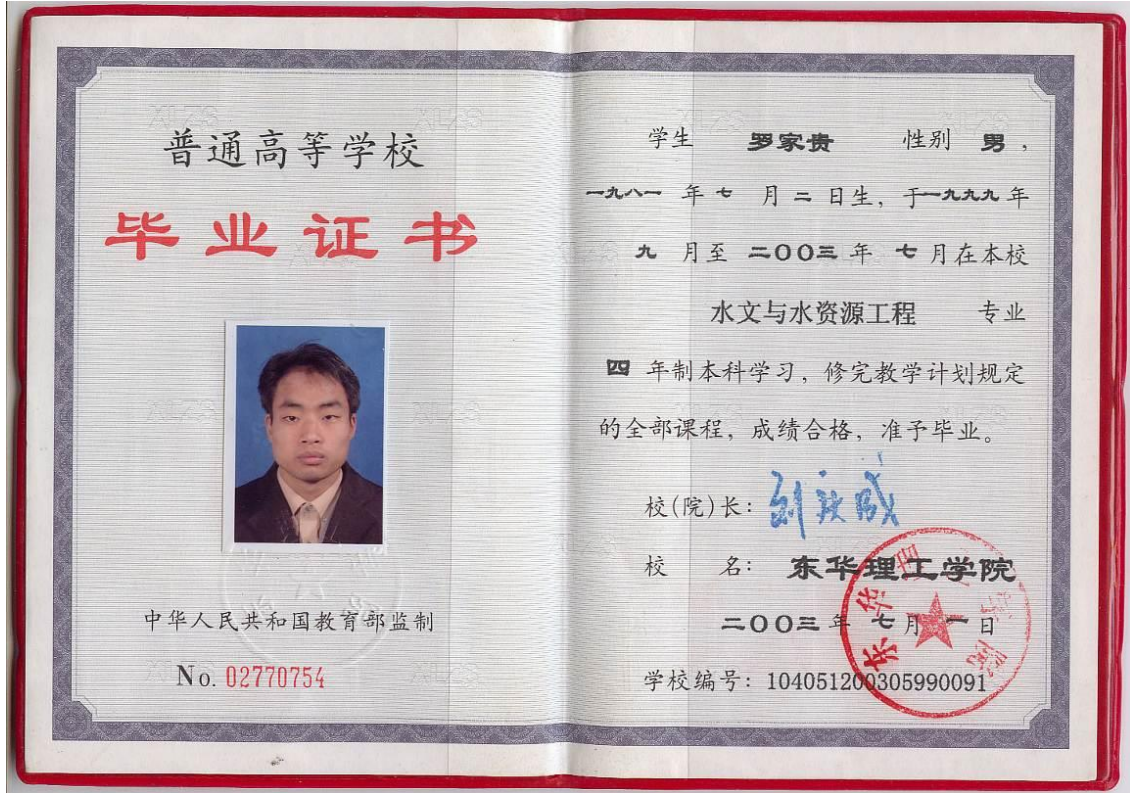 普通高等学校
毕业证书
中华人民共和国教育部监制
No. 02770754
学生 罗家贵 性别 男，
一九八一 年 七 月 二 日生，于一九九九年
九 月至 二〇〇三 年 七 月在本校
水文与水资源工程 专业
四 年制本科学习，修完教学计划规定
的全部课程，成绩合格，准予毕业。
校(院)长：
校 名：东华理工学院
二〇〇三 年 七 月 一 日
学校编号：104051200305990091
东华理工学院